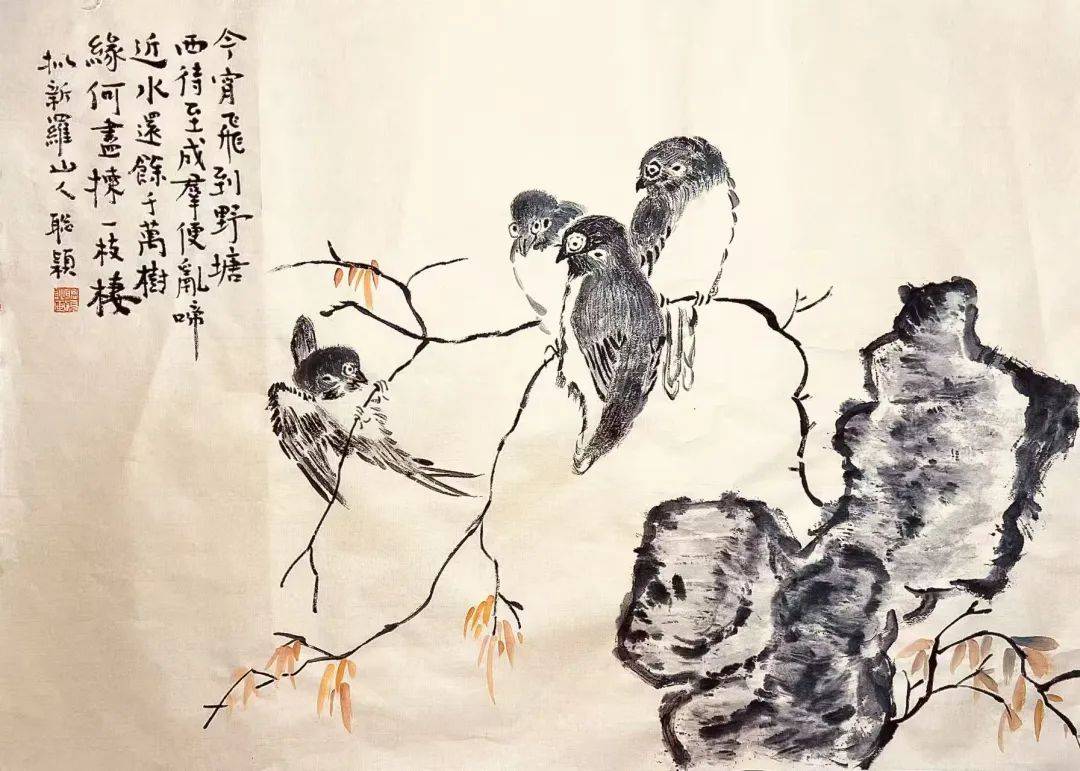 今宵飛到野塘
西待至成羣便亂啼
近水還餘千萬樹
緣何盡揀一枝棲
拟新羅山人 聪穎